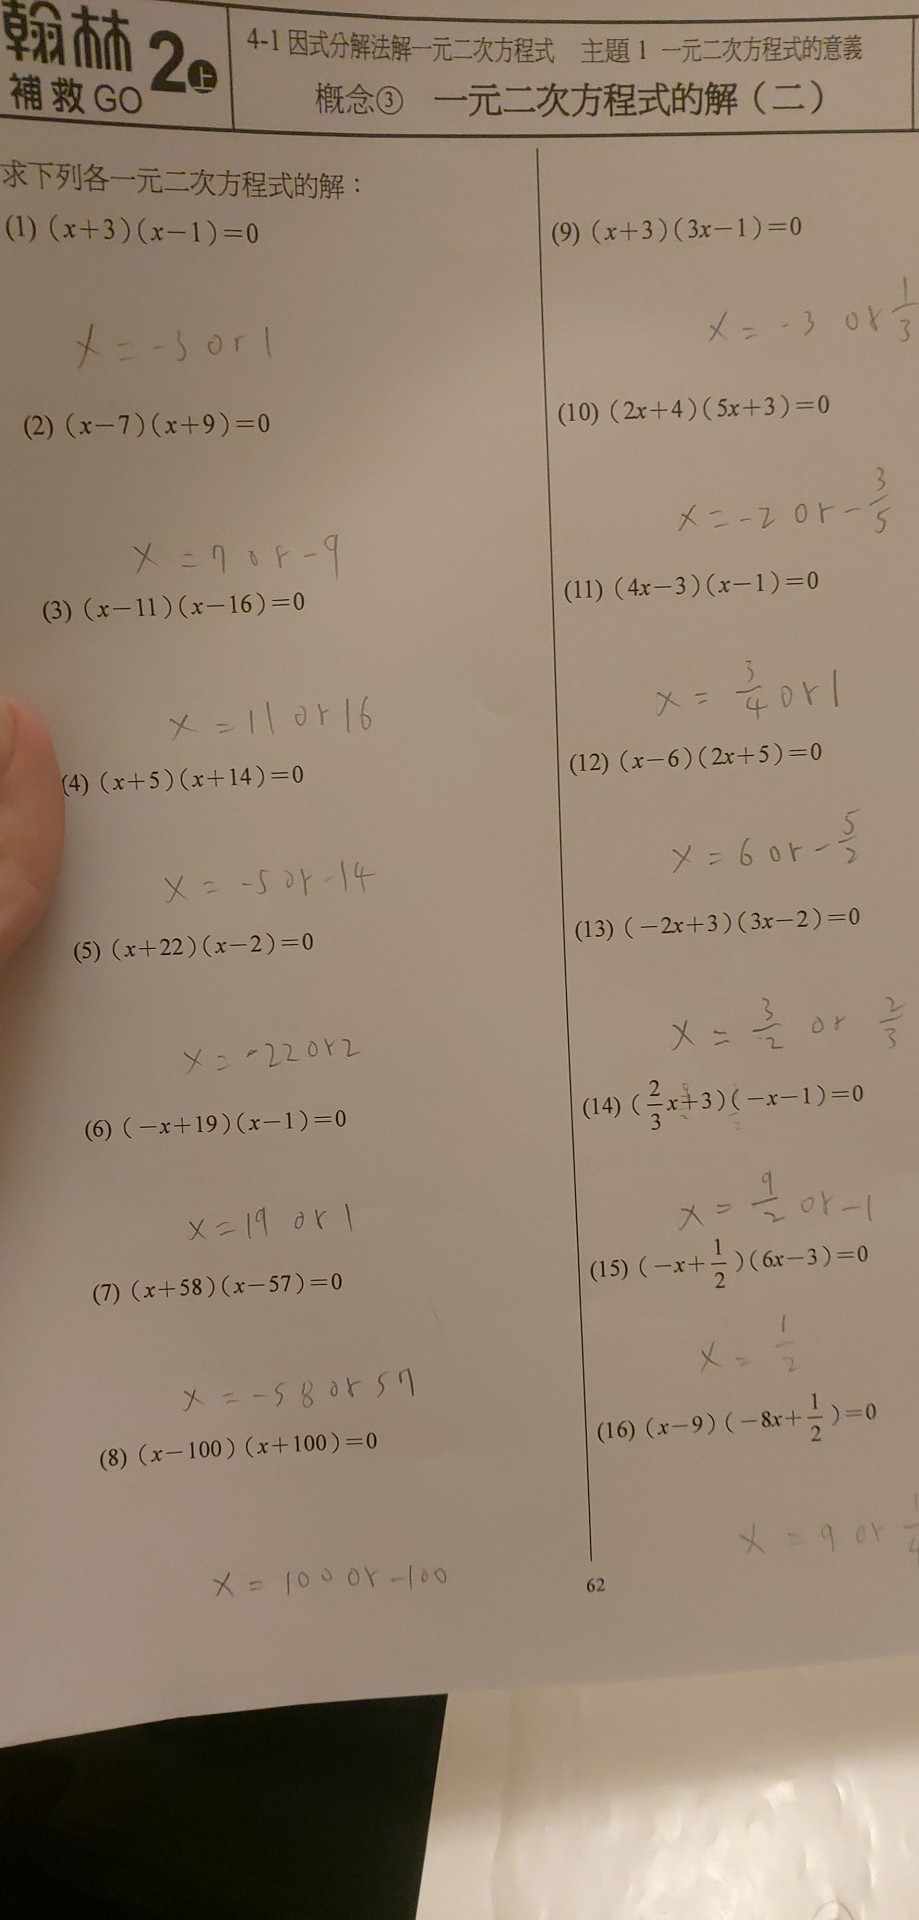 翰林
補救GO
2上
4-1 因式分解法解一元二次方程式 主題1 一元二次方程式的意義
概念③ 一元二次方程式的解（二）
求下列各一元二次方程式的解：
(1) (x+3)(x−1)=0
x = -3 or 1
(2) (x−7)(x+9)=0
x = 7 or -9
(3) (x−11)(x−16)=0
x = 11 or 16
(4) (x+5)(x+14)=0
x = -5 or -14
(5) (x+22)(x−2)=0
x = -22 or 2
(6) (−x+19)(x−1)=0
x = 19 or 1
(7) (x+58)(x−57)=0
x = -58 or 57
(8) (x−100)(x+100)=0
x = 100 or -100
(9) (x+3)(3x−1)=0
x = -3 or 1/3
(10) (2x+4)(5x+3)=0
x = -2 or -3/5
(11) (4x−3)(x−1)=0
x = 3/4 or 1
(12) (x−6)(2x+5)=0
x = 6 or -5/2
(13) (−2x+3)(3x−2)=0
x = 3/2 or 2/3
(14) (2/3x+3)(−x−1)=0
x = 9/2 or -1
(15) (−x+1/2)(6x−3)=0
x = 1/2
(16) (x−9)(−8x+1/2)=0
x = 9 or
62